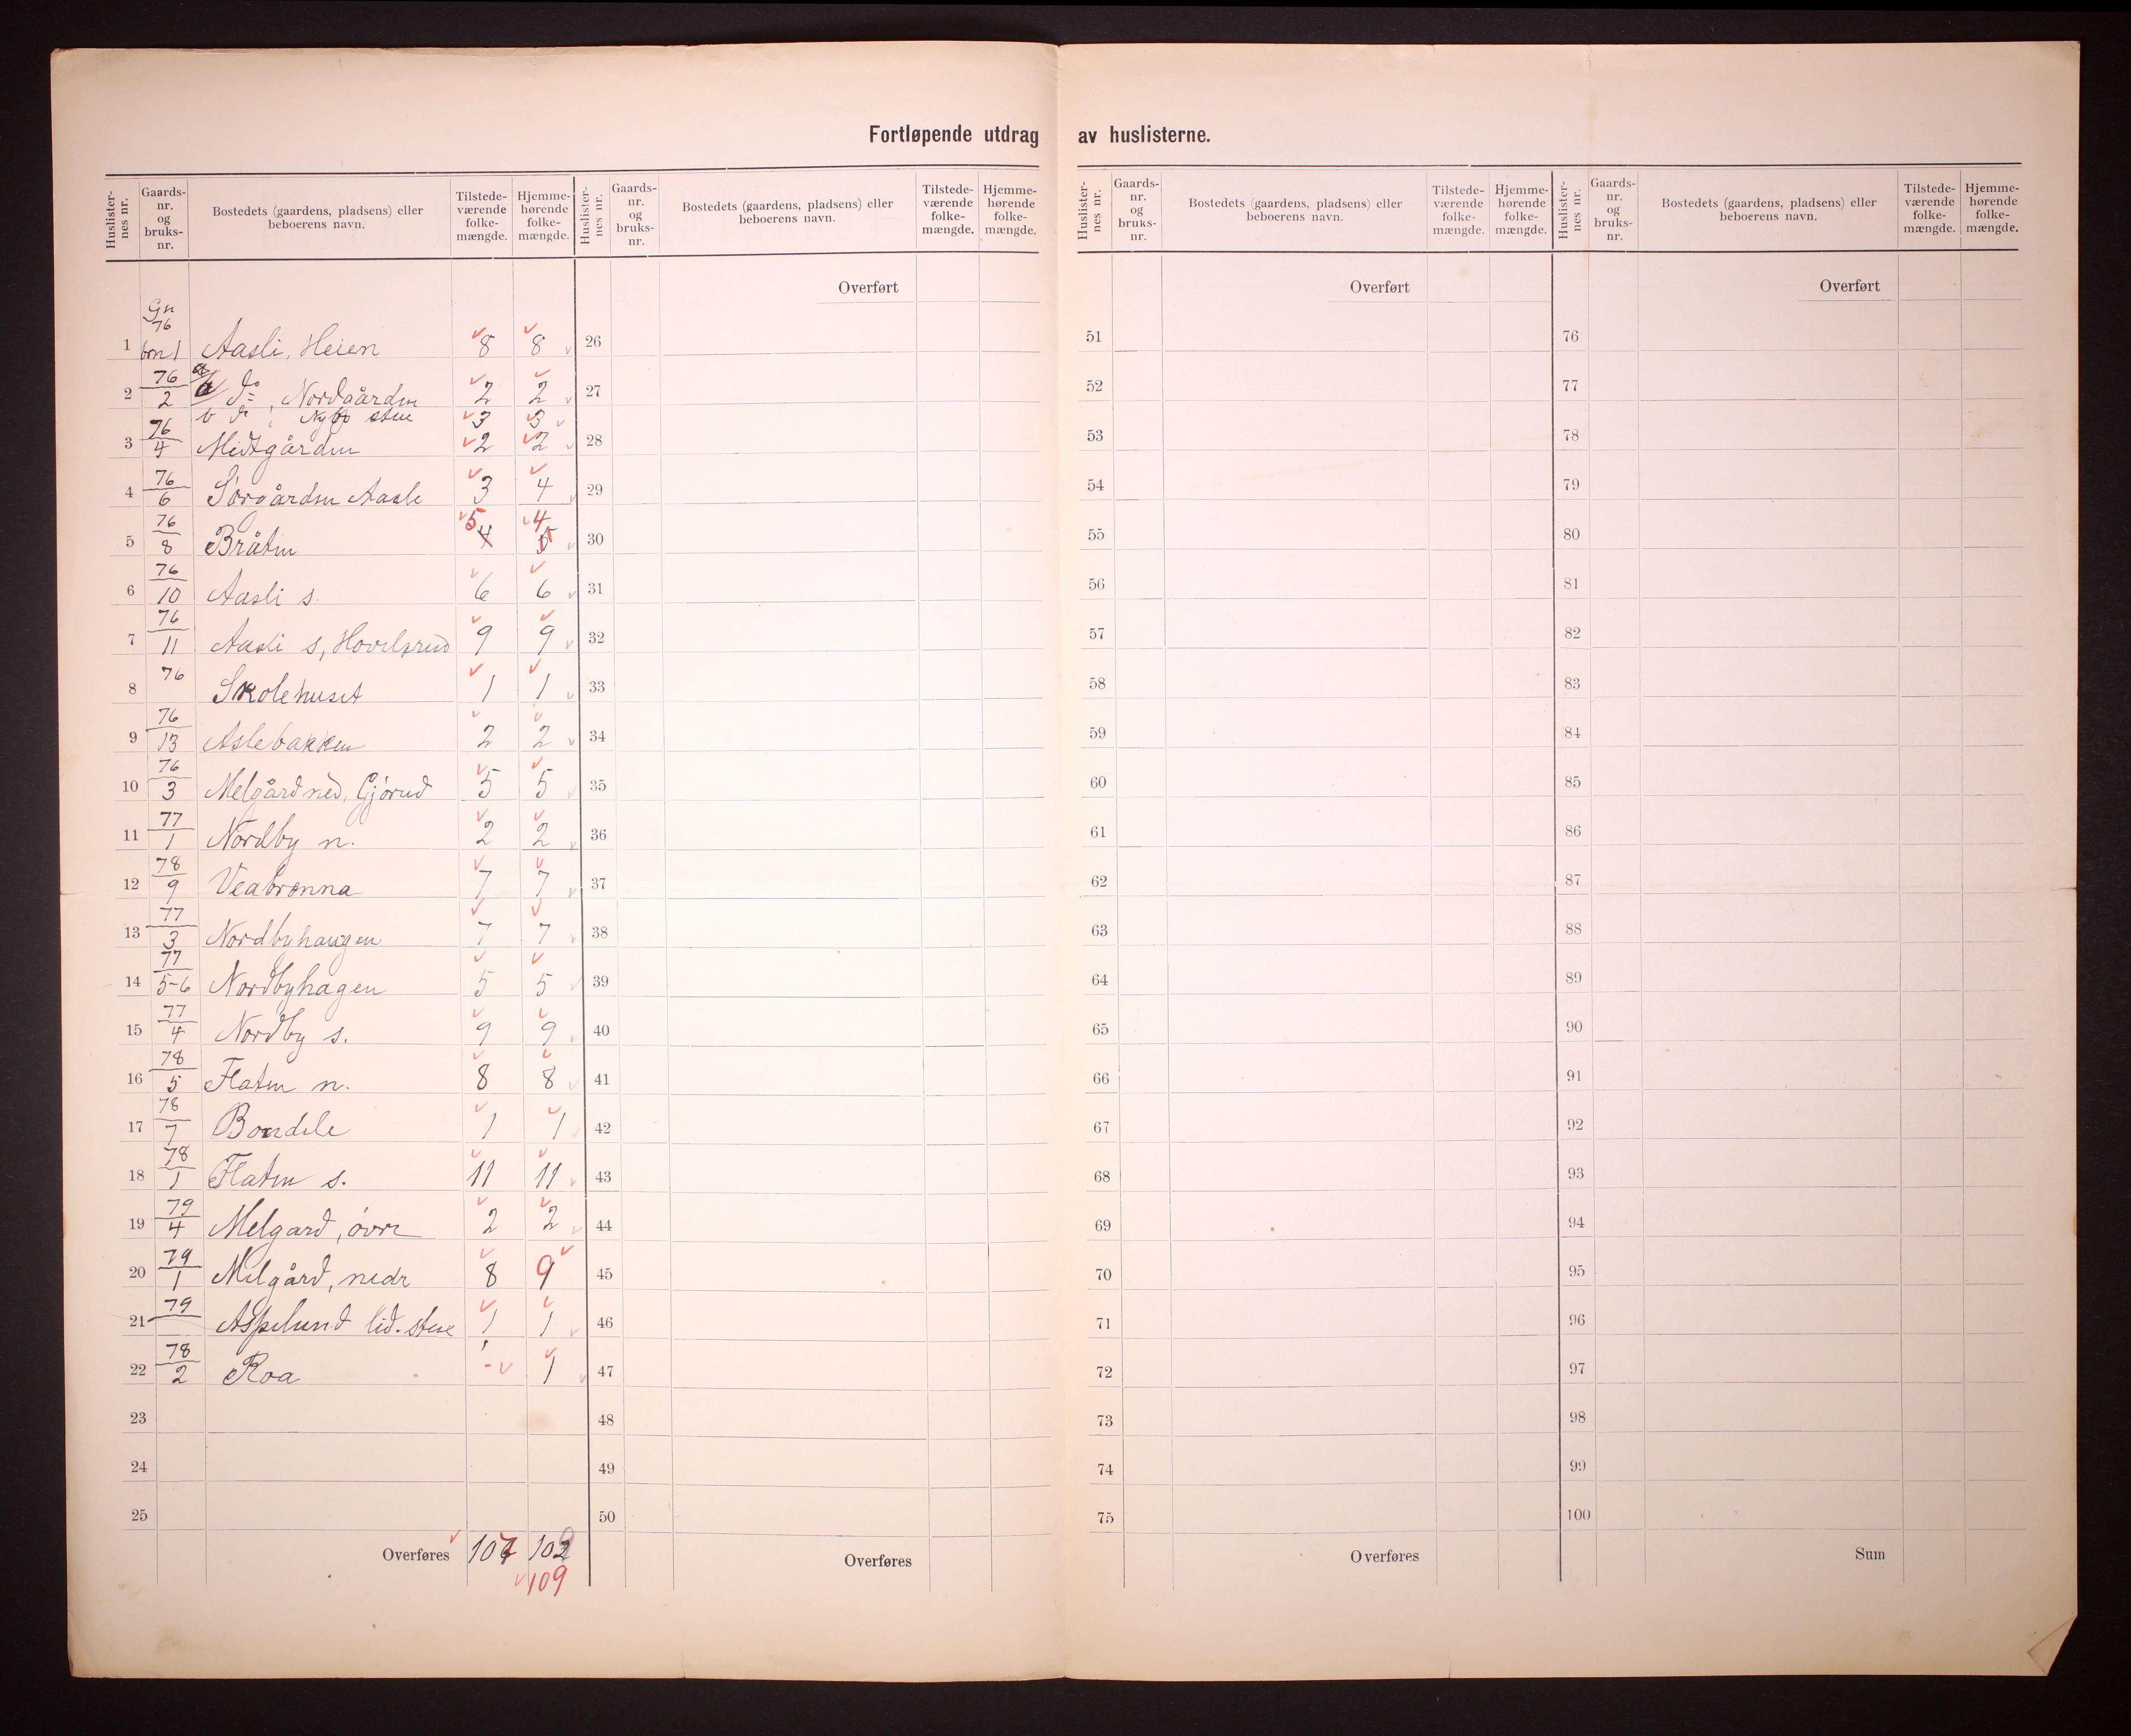 Fortløpende utdrag av huslisterne.
Huslister-nes nr. Gaards-nr. og bruks-nr. Bostedets (gaardens, pladsens) eller beboerens navn. Tilstede-værende folke-mængde. Hjemme-hørende folke-mængde.
Huslister-nes nr. Gaards-nr. og bruks-nr. Bostedets (gaardens, pladsens) eller beboerens navn. Tilstede-værende folke-mængde. Hjemme-hørende folke-mængde.
Huslister-nes nr. Gaards-nr. og bruks-nr. Bostedets (gaardens, pladsens) eller beboerens navn. Tilstede-værende folke-mængde. Hjemme-hørende folke-mængde.
Huslister-nes nr. Gaards-nr. og bruks-nr. Bostedets (gaardens, pladsens) eller beboerens navn. Tilstede-værende folke-mængde. Hjemme-hørende folke-mængde.
Overført Overført Overført
Gn 76
1 brn 1 Aasli, Heien 8 8 26 51 76
2 76/2 a do, Nordgården 2 2 27 52 77
b do, stue 3 3
3 76/4 Midtgården 2 2 28 53 78
4 76/6 Sørgården Aasle 3 4 29 54 79
5 76/8 Bråten 4 5 5 4 30 55 80
6 76/10 Aasli s. 6 6 31 56 81
7 76/11 Aasli s, Hovelsrud 9 9 32 57 82
8 76 Skolehuset 1 1 33 58 83
9 76/13 Aslebakken 2 2 34 59 84
10 76/3 Melgård ned, Gjørud 5 5 35 60 85
11 77/1 Nordby n. 2 2 36 61 86
12 78/9 Veabrønna 7 7 37 62 87
13 77/3 Nordbyhaugen 7 7 38 63 88
14 77/5-6 Nordbyhagen 5 5 39 64 89
15 77/4 Nordby s. 9 9 40 65 90
16 78/5 Flaten n. 8 8 41 66 91
17 78/7 Bondele 1 1 42 67 92
18 78/1 Flaten s. 11 11 43 68 93
19 79/4 Melgard, øvre 2 2 44 69 94
20 79/1 Melgård, nedr 8 9 45 70 95
21 79 Aspelund lid. stue 1 1 46 71 96
22 78/2 Roa - 1 47 72 97
23 48 73 98
24 49 74 99
25 50 75 100
Overføres 107 Overføres Overføres Sum
109